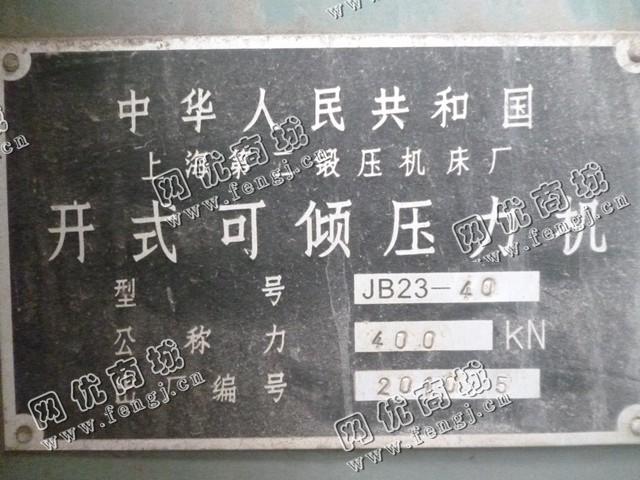 中华人民共和国
上海第二锻压机床厂
开式可倾压力机
型号 JB23-40
公称力 400 KN
编号
网优商城
www.fengj.com.cn
网优商城
www.fengj.com.cn
网优商城
www.fengj.com.cn
网优商城
www.fengj.com.cn